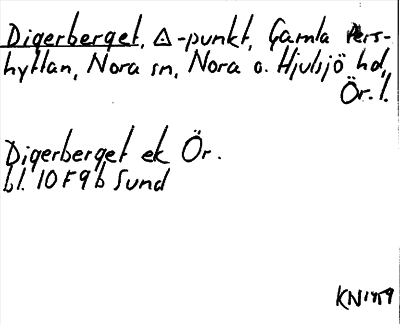 Digerberget, △-punkt, Gamla Pers-
hyttan, Nora sn, Nora o. Hjulsjö hd,
Ör. l.
Digerberget ek Ör.
bl. 10F9b Sund